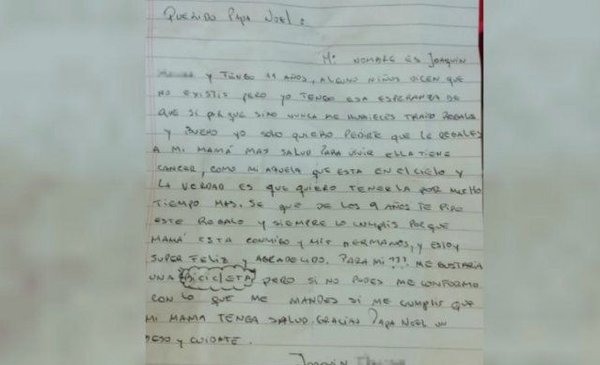 QUERIDO PAPA NOEL:
Mi NOMBRE ES JOAQUIN
Y TENGO 11 AÑOS, ALGUNO NIÑOS DICEN QUE
NO EXISTIS PERO YO TENGO ESA ESPERANZA DE
QUE SI POR QUE SINO NUNCA ME HUBIESES TRAIDO REGALO
Y BUENO YO SOLO QUIERO PEDIRTE QUE LE REGALES
A MI MAMÁ MAS SALUD PARA VIVIR ELLA TIENE
CANCER, COMO MI ABUELA QUE ESTA EN EL CIELO Y
LA VERDAD ES QUE QUIERO TENERLA POR MUCHO
TIEMPO MAS. SE QUE DE LOS 9 AÑOS TE PIDO
ESTE REGALO Y SIEMPRE LO CUMPLIS PORQUE
MAMÁ ESTA CONMIGO Y MIS HERMANOS, Y ESTOY
SUPER FELIZ Y AGRADECIDO. PARA MI??? ME GUSTARIA
UNA BICICLETA PERO SI NO PODES ME CONFORMO
CON LO QUE ME MANDES SI ME CUMPLIS QUE
MI MAMA TENGA SALUD. GRACIAS PAPA NOEL UN
BESO Y CUIDATE.
JOAQUIN